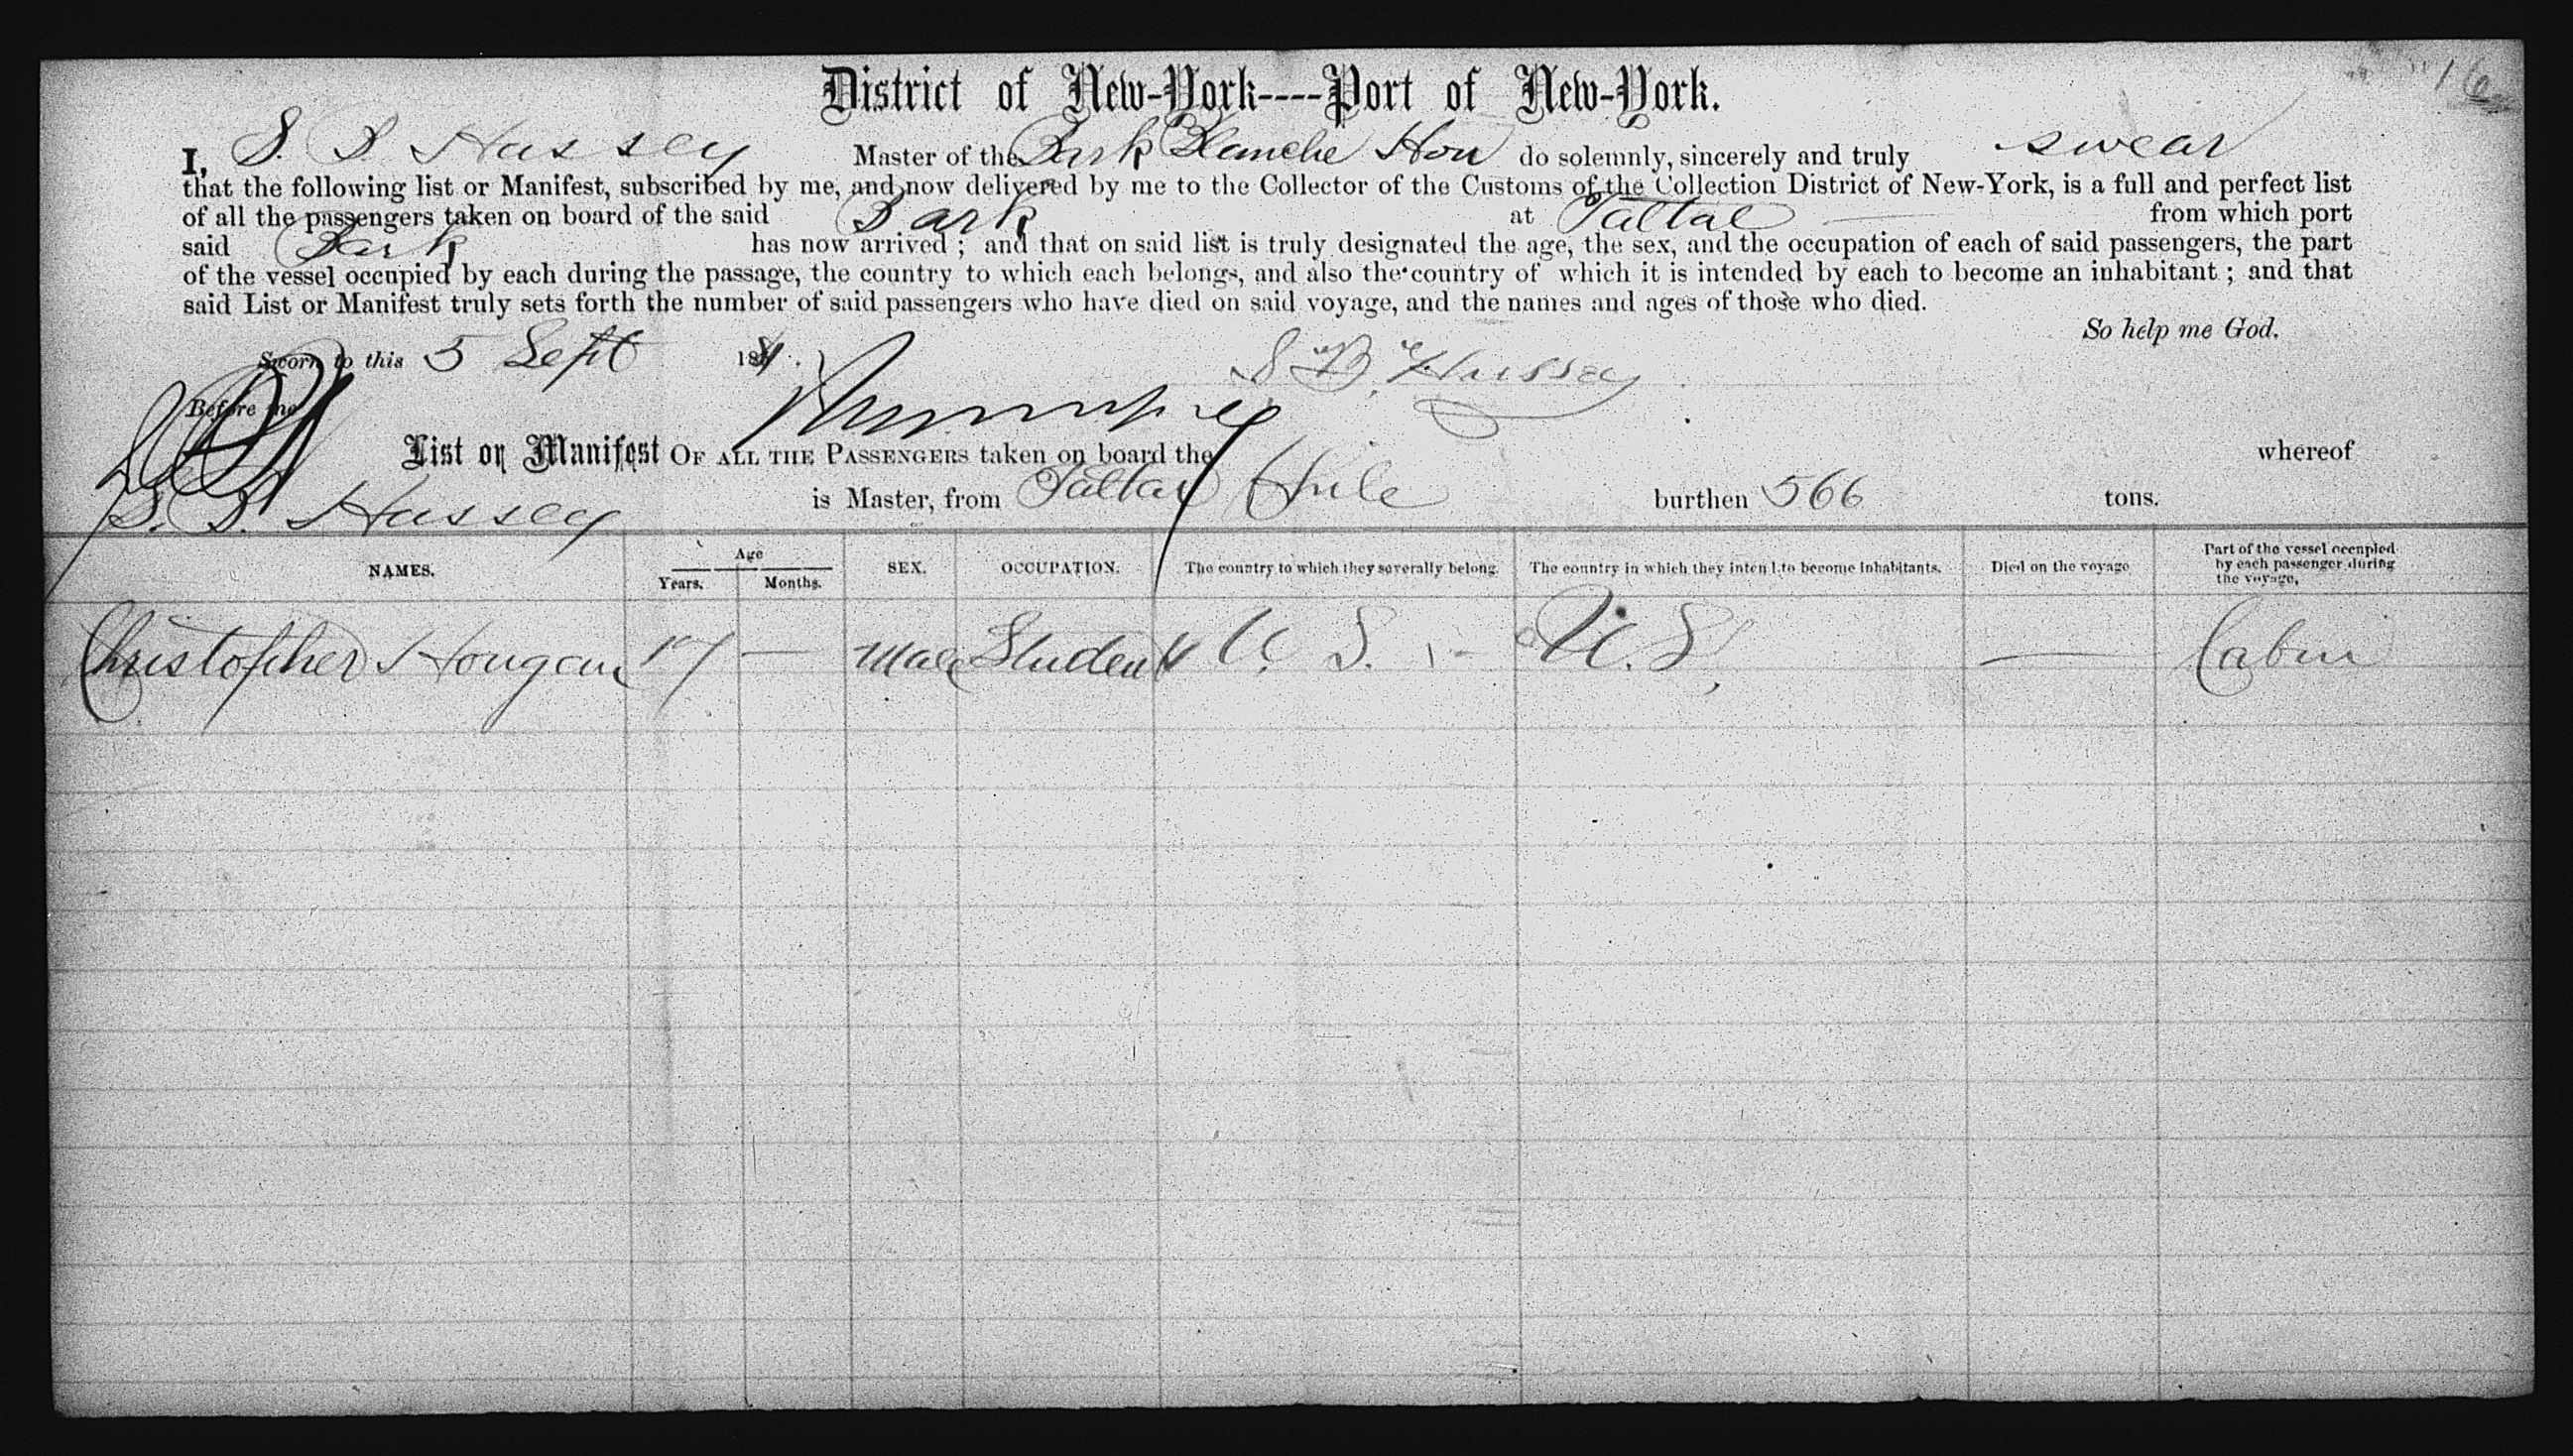 16
District of New-York----Port of New-York.
I, S. B. Hussey Master of the Bark Blanche How do solemnly, sincerely and truly swear
that the following list or Manifest, subscribed by me, and now delivered by me to the Collector of the Customs of the Collection District of New-York, is a full and perfect list
of all the passengers taken on board of the said Bark at Taltal from which port
said Bark has now arrived ; and that on said list is truly designated the age, the sex, and the occupation of each of said passengers, the part
of the vessel occupied by each during the passage, the country to which each belongs, and also the country of which it is intended by each to become an inhabitant ; and that
said List or Manifest truly sets forth the number of said passengers who have died on said voyage, and the names and ages of those who died.
So help me God.
Sworn to this 5 Sept 188 S. B. Hussey
Before me
List or Manifest OF ALL THE PASSENGERS taken on board the whereof
S. B. Hussey is Master, from Taltal Chile burthen 566 tons.
NAMES. Age Years. Months. SEX. OCCUPATION. The country to which they severally belong. The country in which they intend to become inhabitants. Died on the voyage Part of the vessel occupied by each passenger during the voyage,
Christopher Hougan 17 — Male Student U. S. U. S. — Cabin